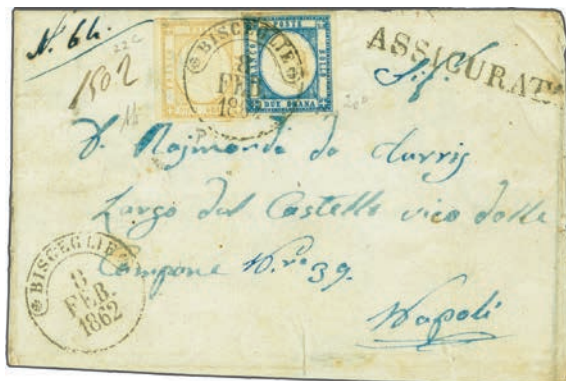 N. 64.
22c
1502
BISCEGLIE
8
FEB.
1862
POSTE
FRANCO
BOLLO
DUE GRANA
ASSICURATA
Sig.
D. Raimondo de Turris
Largo del Castello vico delle
Campane N.ro 39.
Napoli
BISCEGLIE
8
FEB.
1862